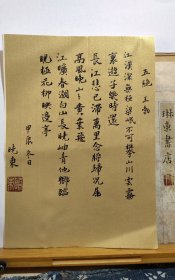 五絕 王勃
江漢深無極梁岷不可攀山川雲霧
裏遊子幾時還
長江悲已滯萬里念將歸況屬
高風晚山山黃葉飛
江曠春潮白山長曉岫青他鄉臨
睨極花柳映邊亭
甲辰冬日
曉東
東書店